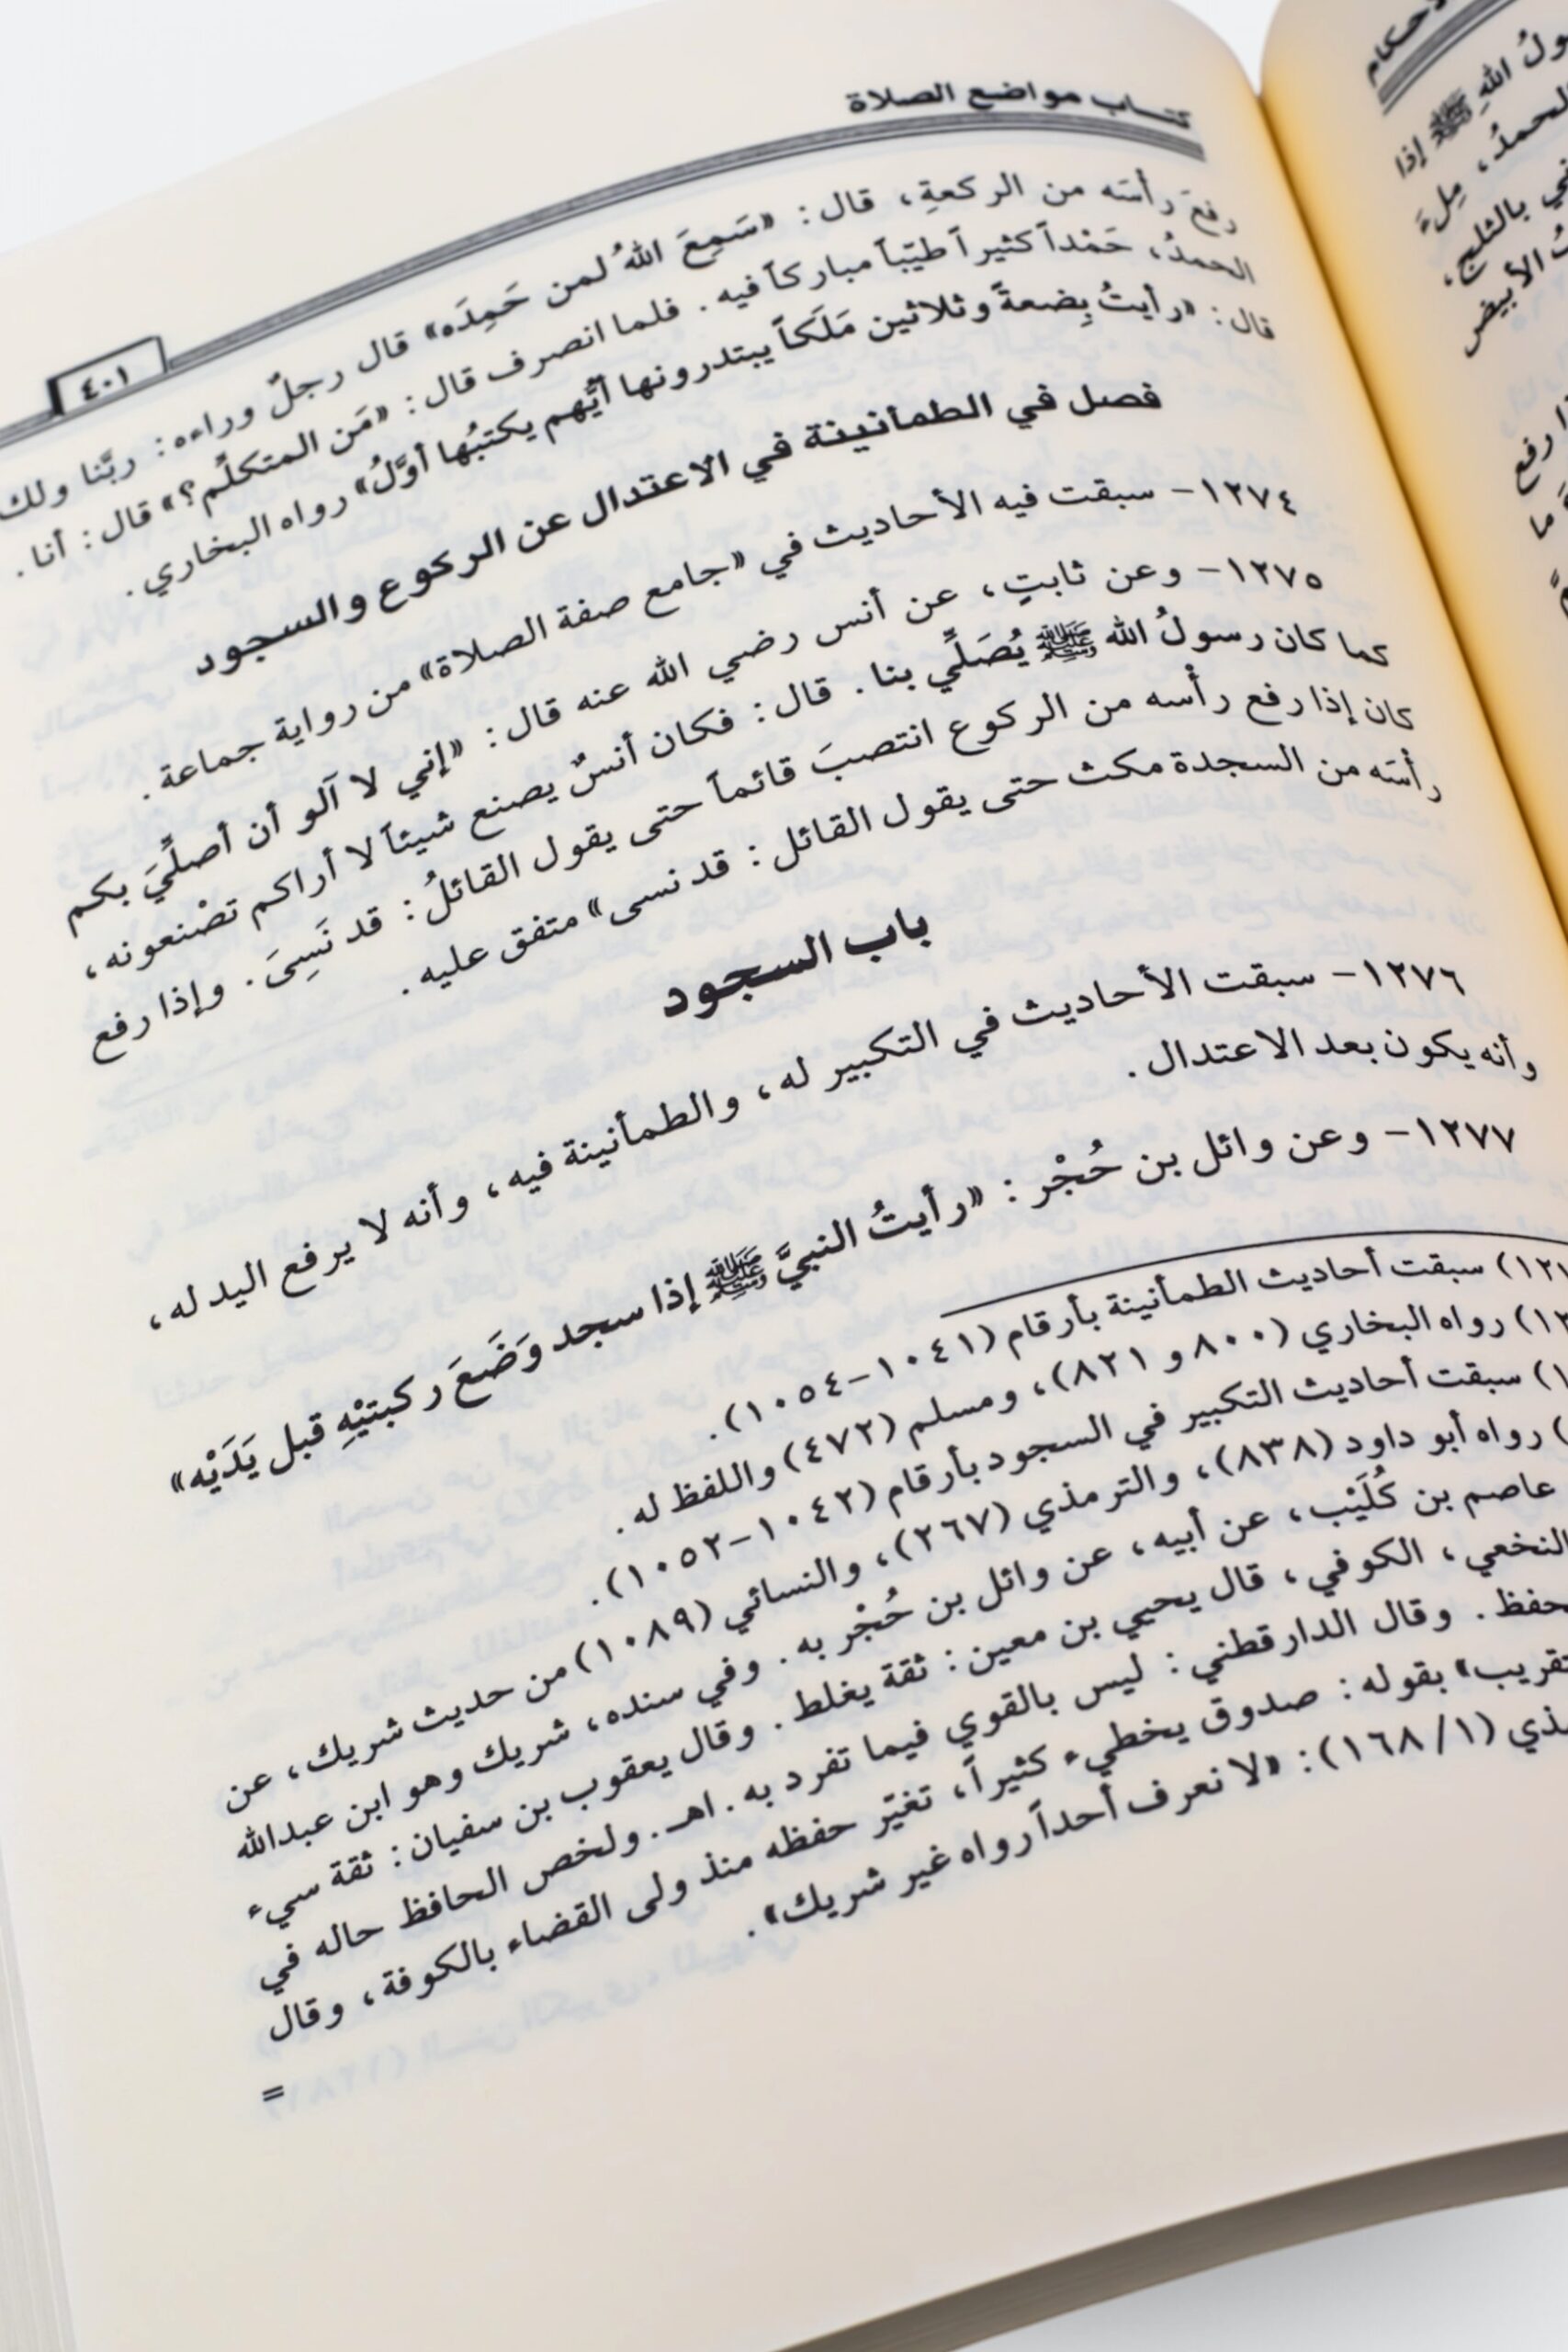 كتاب مواضع الصلاة
٤٠١
رفعَ رأسَه من الركعةِ، قال: «سَمِعَ اللهُ لمن حَمِدَه» قال رجلٌ وراءه: ربّنا ولك
الحمدُ، حَمْداً كثيراً طيّباً مباركاً فيه. فلما انصرف قال: «مَن المتكلِّم؟» قال: أنا.
قال: «رأيتُ بِضعةً وثلاثين مَلَكاً يبتدرونها أيُّهم يكتبُها أوَّلُ» رواه البخاري.
فصل في الطمأنينة في الاعتدال عن الركوع والسجود
١٢٧٤- سبقت فيه الأحاديث في «جامع صفة الصلاة» من رواية جماعة.
١٢٧٥- وعن ثابتٍ، عن أنس رضي الله عنه قال: «إني لا آلو أن أصلِّيَ بكم
كما كان رسولُ الله ﷺ يُصَلِّي بنا. قال: فكان أنسٌ يصنع شيئاً لا أراكم تصْنعونه،
كان إذا رفع رأْسه من الركوع انتصبَ قائماً حتى يقول القائلُ: قد نَسِىَ. وإذا رفع
رأسَه من السجدة مكث حتى يقول القائل: قد نسى» متفق عليه.
باب السجود
١٢٧٦- سبقت الأحاديث في التكبير له، والطمأنينة فيه، وأنه لا يرفع اليد له،
وأنه يكون بعد الاعتدال.
١٢٧٧- وعن وائل بن حُجْر: «رأيتُ النبيَّ ﷺ إذا سجد وَضَعَ ركبتيْهِ قبل يَدَيْه»
سبقت أحاديث الطمأنينة بأرقام (١٠٤١-١٠٥٤).
رواه البخاري (٨٠٠ و ٨٢١)، ومسلم (٤٧٢) واللفظ له.
سبقت أحاديث التكبير في السجود بأرقام (١٠٤٢-١٠٥٢).
رواه أبو داود (٨٣٨)، والترمذي (٢٦٧)، والنسائي (١٠٨٩) من حديث شريك، عن
عاصم بن كُلَيْب، عن أبيه، عن وائل بن حُجْر به. وفي سنده، شريك وهو ابن عبدالله
النخعي، الكوفي، قال يحيي بن معين: ثقة يغلط. وقال يعقوب بن سفيان: ثقة سيء
حفظ. وقال الدارقطني: ليس بالقوي فيما تفرد به. اهـ. ولخص الحافظ حاله في
تقريب» بقوله: صدوق يخطيء كثيراً، تغيّر حفظه منذ ولى القضاء بالكوفة، وقال
مذي (١/١٦٨): «لا نعرف أحداً رواه غير شريك».
=
ولُ اللهِ ﷺ إذا
الحمدُ، مِلءَ
ني بالثلجِ،
الأبيض
رفع
ما